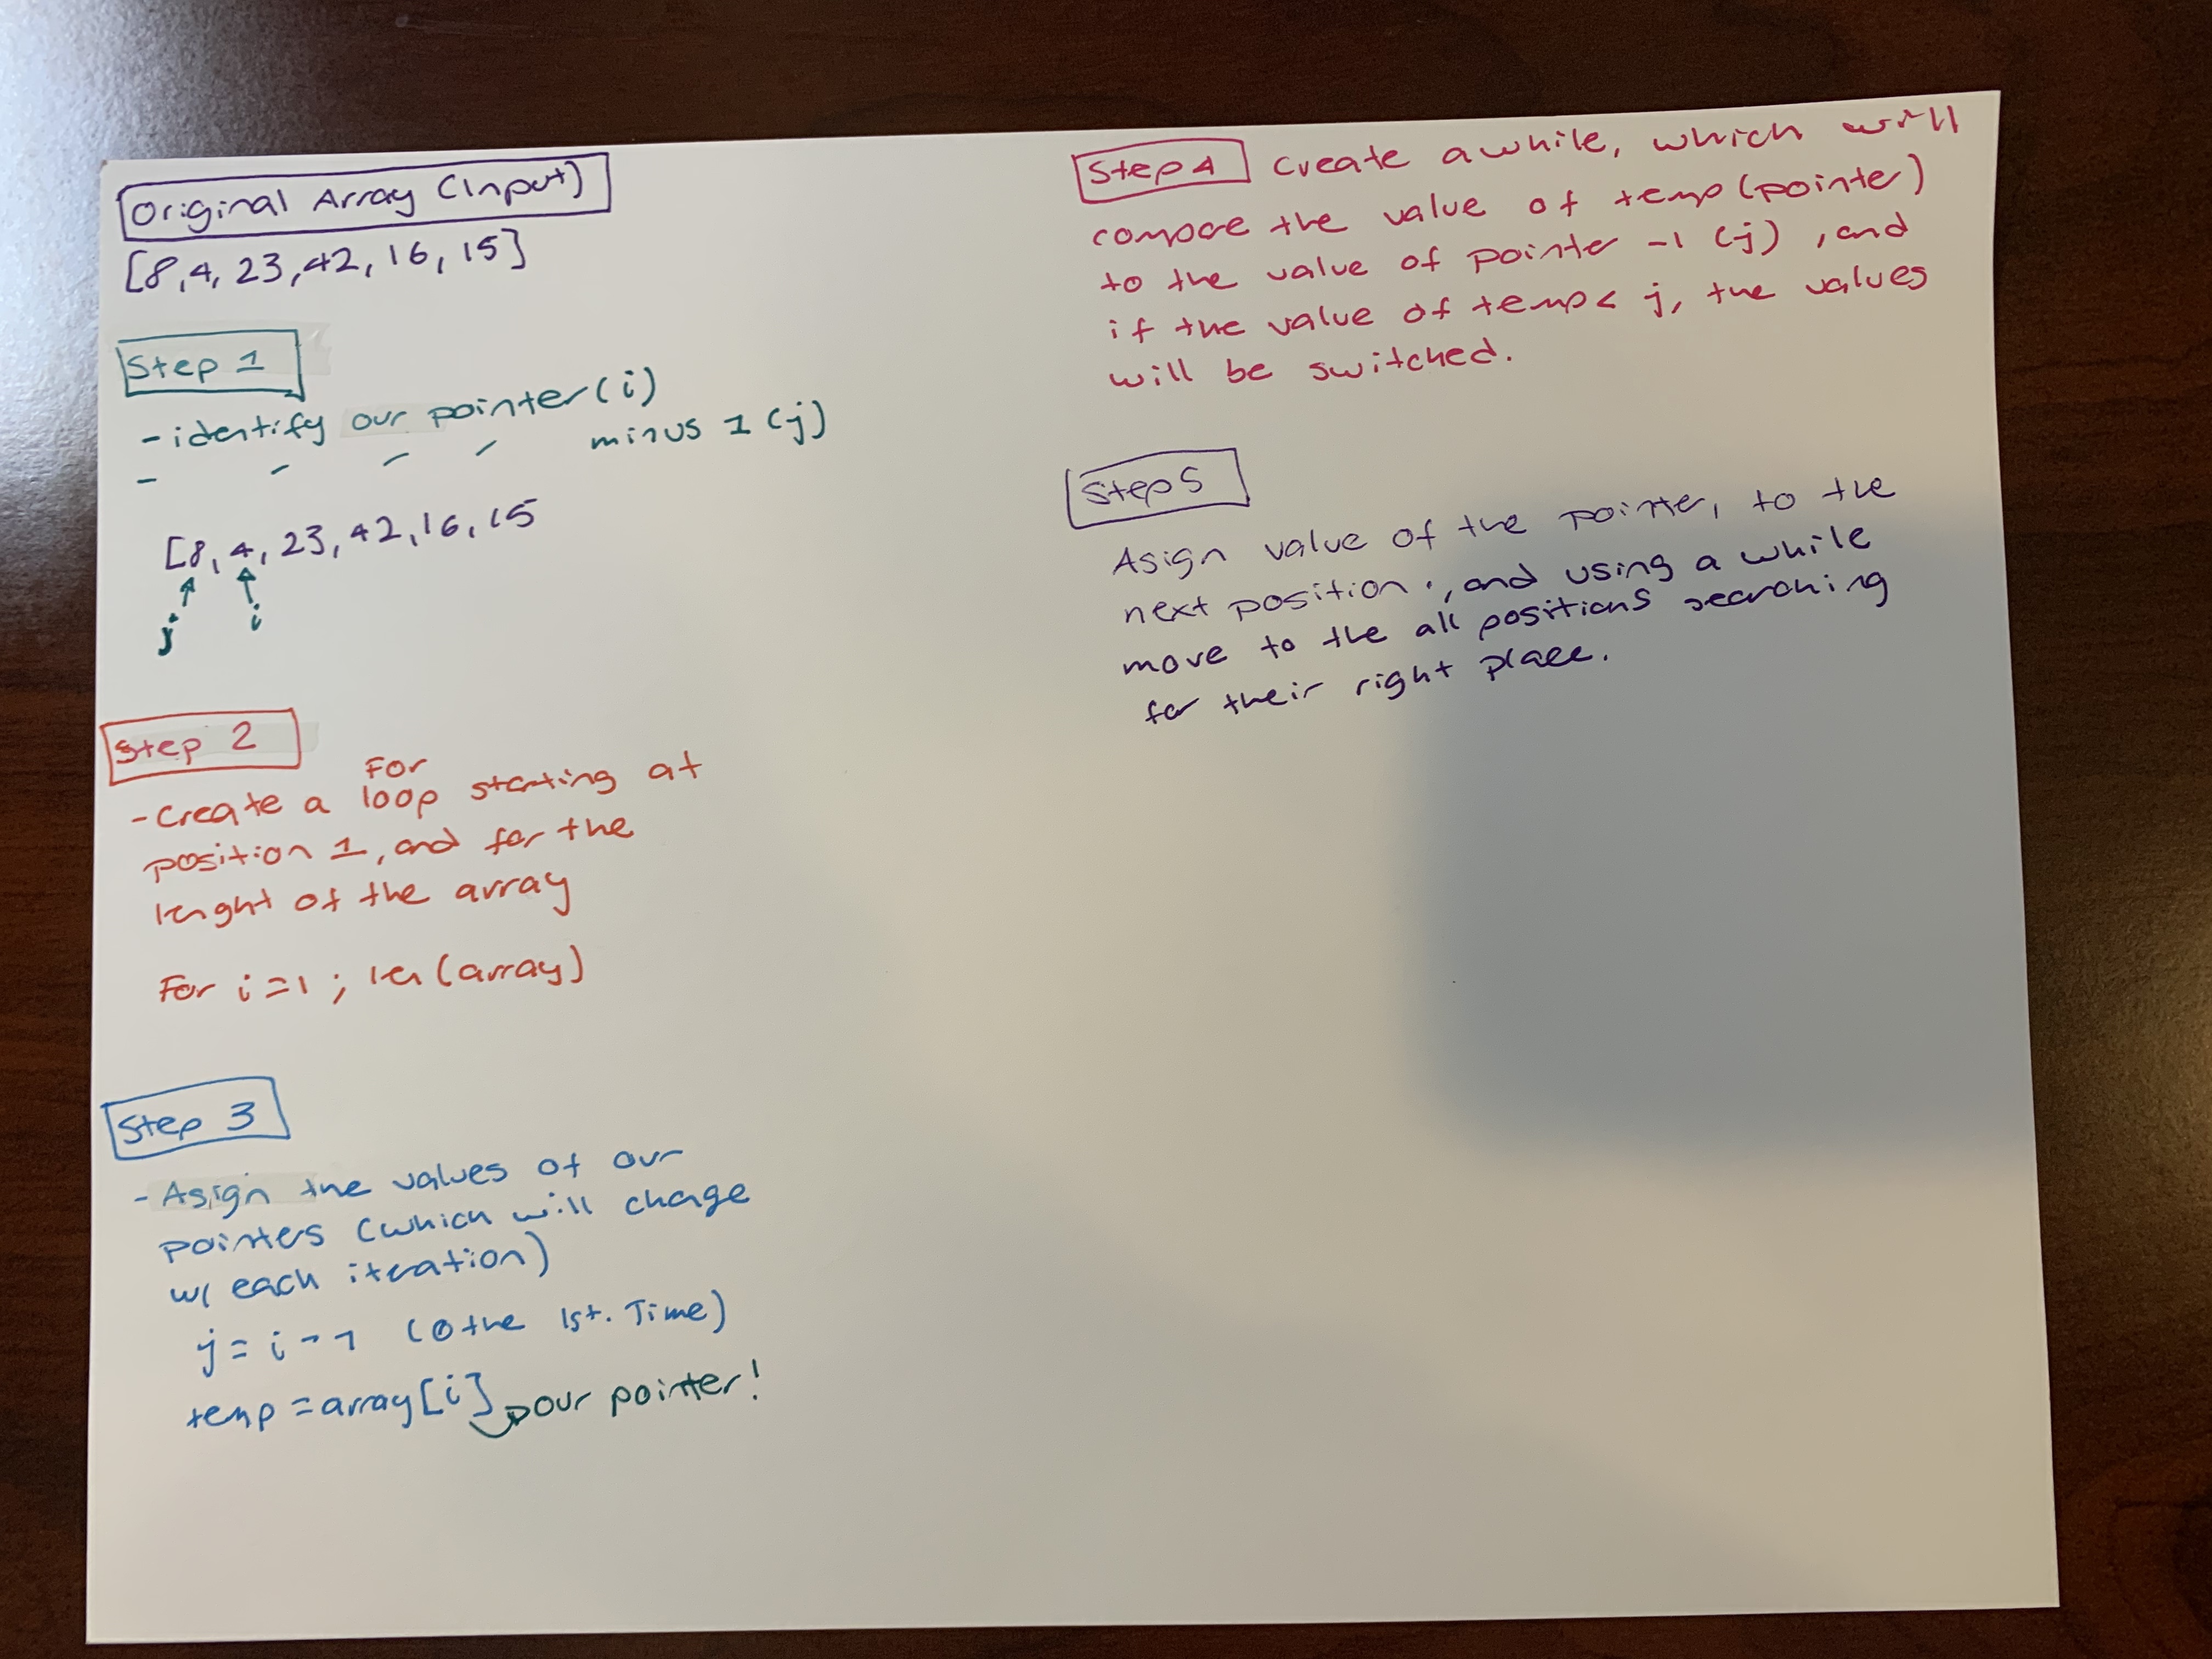 Original Array (Input)
[8,4, 23,42, 16, 15]
Step 1
- identify our pointer (i)
- - - - minus 1 (j)
[8, 4, 23, 42, 16, 15
j i
Step 2
For
- Create a loop starting at
position 1, and for the
lenght of the array
For i=1 ; len (array)
Step 3
- Asign the values of our
pointers (which will change
w/ each iteration)
j = i - 1 (0 the 1st. Time)
temp = array[i] our pointer!
Step 4 Create a while, which will
compare the value of temp (pointer)
to the value of pointer -1 (j) , and
if the value of temp < j, the values
will be switched.
Step 5
Asign value of the pointer, to the
next position ., and using a while
move to the all positions searching
for their right place.